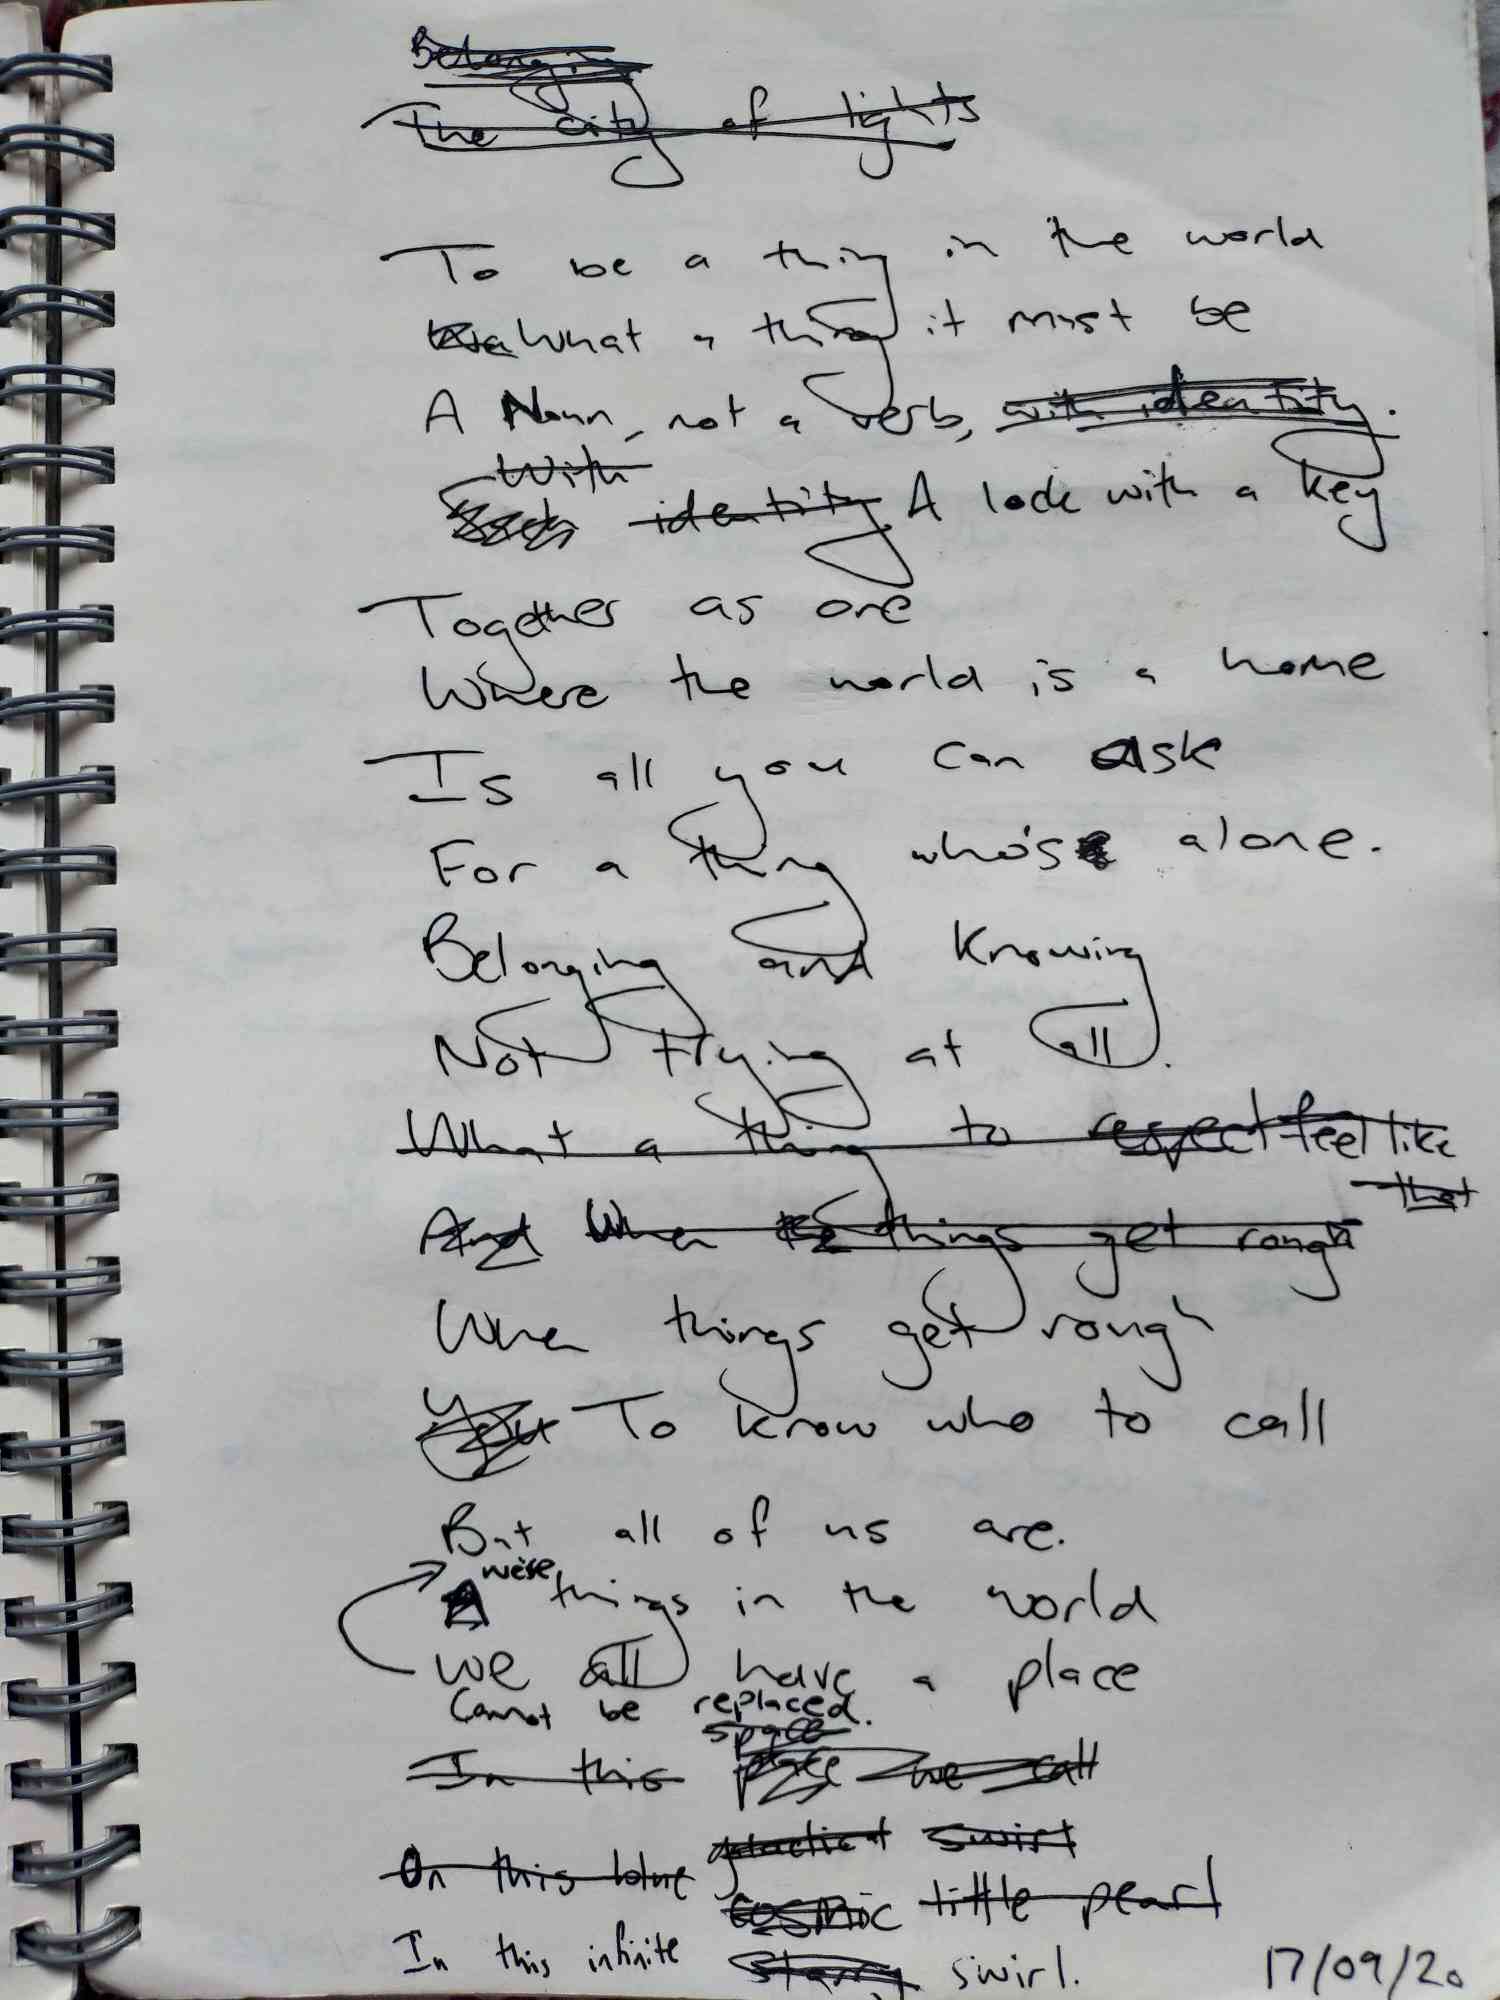 Belonging
The city of lights
To be a thing in the world
What a thing it must be
A Noun, not a verb, with identity.
With
identity A lock with a key
Together as one
Where the world is a home
Is all you can ask
For a thing who's alone.
Belonging and Knowing
Not Trying at all.
What a thing to respect feel like
that
And When things get rough
When things get rough
You To know who to call
But all of us are.
we're
things in the world
we all have a place
Cannot be replaced.
space
In this place we call
galactical swirl
On this blue
cosmic little pearl
In this infinite starry swirl.
17/09/20